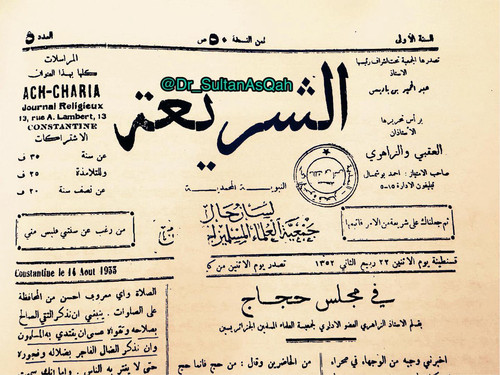 السنة الأولى
ثمن النسخة ٥٠ ص
العدد ٥
تصدرها الجمعية تحت اشراف رئيسها
الاستاذ
عبد الحميد بن باديس
يرأس تحريرها
الأستاذان
العقبي والزاهري
صاحب الامتياز : احمد بوشمال
تيليفون الادارة ١٥-٥
@Dr_SultanAsQah
الشريعة
النبوية المحمدية
لسان حال
جمعية العلماء المسلمين
المراسلات
كلها بهذا العنوان
ACH-CHARIA
Journal Religieux
13, rue A. Lambert, 13
CONSTANTINE
الاشتراكات
عن سنة ٣٥ ف
وللتلامذة ٢٥ ف
عن نصف سنة ٢٠ ف
ثم جعلناك على شريعة من الامر فاتبعها
من رغب عن سنتي فليس مني
قسنطينة يوم الاثنين ٢٢ ربيع الثاني ١٣٥٢
تصدر يوم الاثنين من ك
Constantine le 14 Aout 1933
في مجلس حجاج
بقلم الاستاذ الزاهري العضو الاداري لجمعية العلماء المسلمين الجزائريين
اخبرني وجيه من الوجهاء في صحراء
من الحاضرين وقال : من حج فانما حج
الصلاة واي معروف احسن من المحافظة
على الصلوات . ينبغي ان نذكر التقي الصالح
بصلاحه وتقواه عسى ان يقتدي به المسلمون
وان نذكر الضال الفاجر بضلاله وفجوره
حتى لا يغتر به الناس